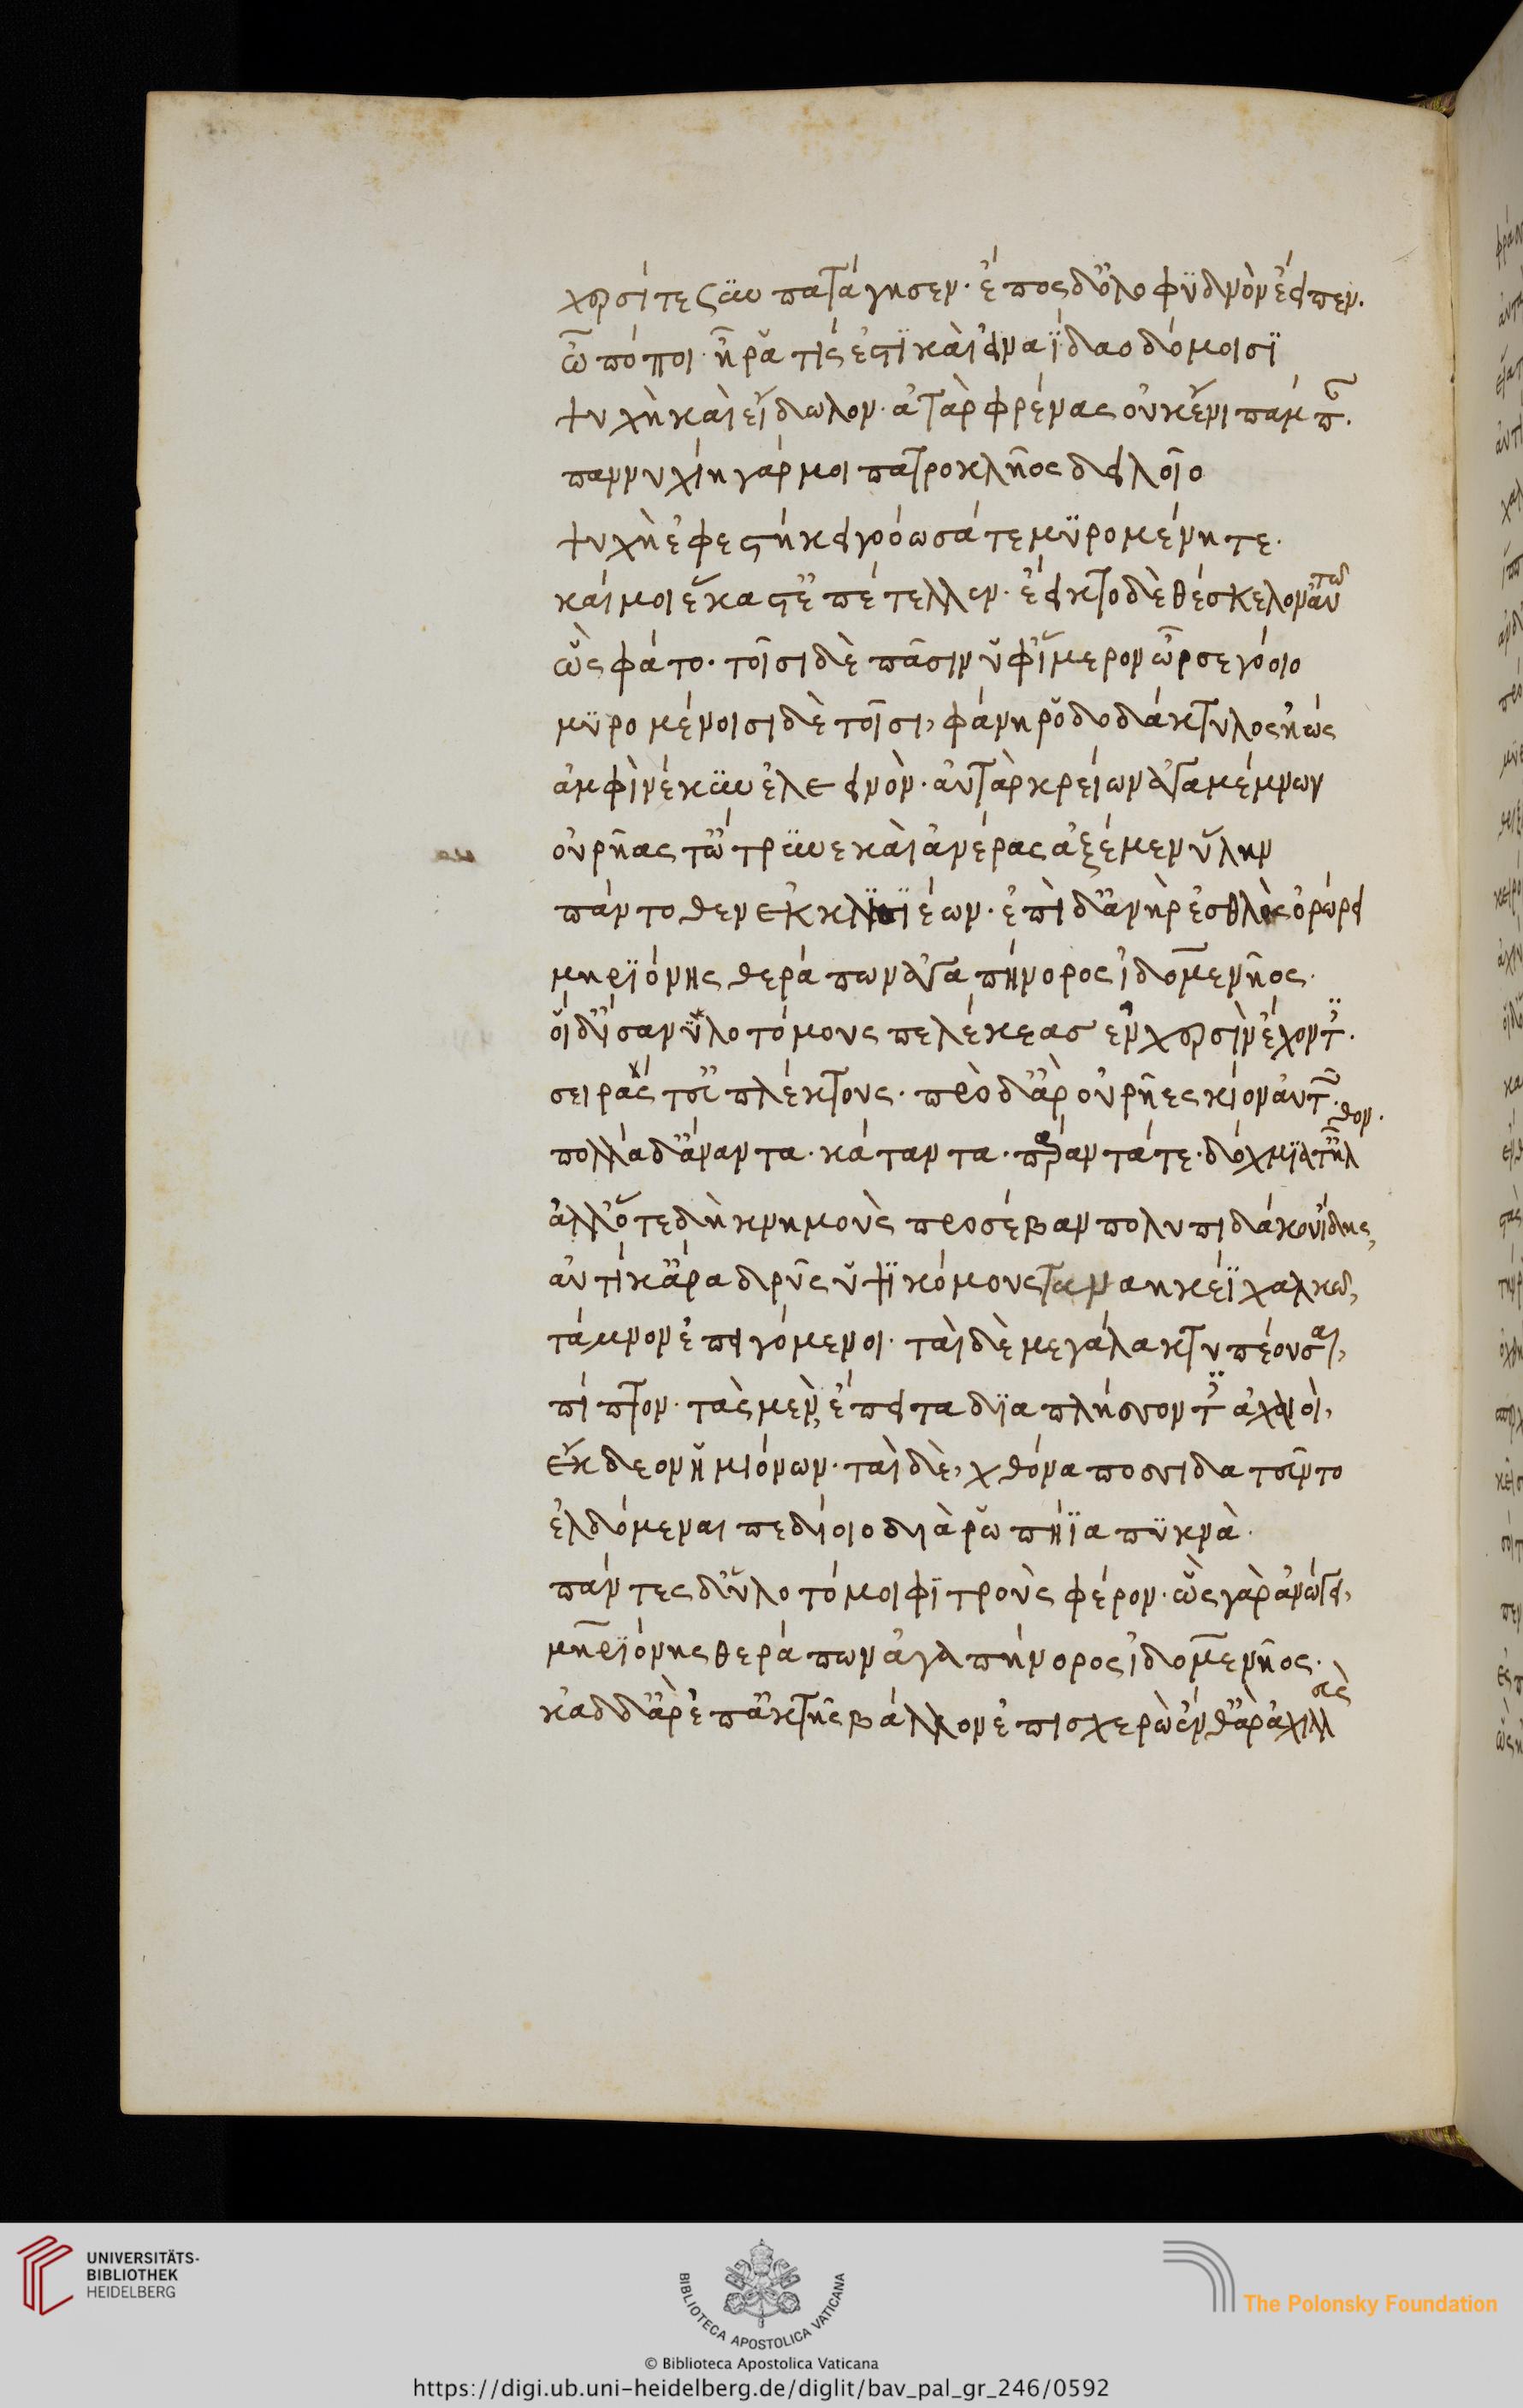 χερσί τε συμπατάγησεν· ἔπος δ' ὀλοφϋδνὸν ἔειπεν.
ὢ πόποι· ἦ ῥά τίς ἐστϊ καὶ εἰν ἀΐδαο δόμοισϊ
ψυχὴ καὶ εἴδωλον· ἀτὰρ φρένας οὐκ ἔνι πάμπαν.
παννυχίη γάρ μοι πατροκλῆος δειλοῖο
ψυχὴ ἐφεστήκει γοόωσά τε μϋρομένη τε.
καί μοι ἕκαστ' ἐπέτελλεν· ἔεικτο δὲ θέσκελον αὐτῶ
ὣς φάτο· τοῖσι δὲ πᾶσιν ὑφ' ἵμερον ὦρσε γόοιο
μϋρομένοισι δὲ τοῖσι, φάνη ῥοδοδάκτυλος ἠώς
ἀμφὶ νέκϋν ἐλεεινόν· αὐτὰρ κρείων ἀγαμέμνων
οὐρῆας τ' ὤτρϋνε καὶ ἀνέρας ἀξέμεν ὕλην
πάντοθεν ἐκ κλισϊέων· ἐπὶ δ' ἀνὴρ ἐσθλὸς ὀρώρει
μηρϊόνης θεράπων ἀγαπήνορος ἰδομενῆος.
οἱ δ' ἴσαν ὑλοτόμους πελέκεας ἐν χερσὶν ἔχοντες.
σειράς τ' εὐπλέκτους· πρὸ δ' ἄρ οὐρῆες κίον αὐτῶν.
πολλὰ δ' ἄναντα· κάταντα· πάραντά τε· δόχμϊά τ' ἦλθον.
ἀλλ' ὅτε δὴ κνημοὺς προσέβαν πολυπιδάκου ἴδης,
αὐτίκ' ἄρα δρῦς ὑψϊκόμους ταναηκέϊ χαλκῶ,
τάμνον ἐπειγόμενοι· ταὶ δὲ μεγάλα κτυπέουσαι,
πίπτον· τὰς μὲν, ἔπειτα δϊαπλήσσοντες ἀχαιοὶ,
ἔκδεον ἡμιόνων· ταὶ δὲ, χθόνα ποσσὶ δατεῦντο
ἐλδόμεναι πεδίοιο διὰ ῥωπήϊα πϋκνὰ.
πάντες δ' ὑλοτόμοι φϊτροὺς φέρον· ὣς γὰρ ἀνώγει,
μηρϊόνης θεράπων ἀγαπήνορος ἰδομενῆος.
κὰδ δ' ἄρ ἐπ' ἀκτῆς βάλλον ἐπισχερὼ ἔνθ' ἄρ ἀχιλλεὺς
UNIVERSITÄTS-
BIBLIOTHEK
HEIDELBERG
BIBLIOTECA APOSTOLICA VATICANA
The Polonsky Foundation
© Biblioteca Apostolica Vaticana
https://digi.ub.uni-heidelberg.de/diglit/bav_pal_gr_246/0592